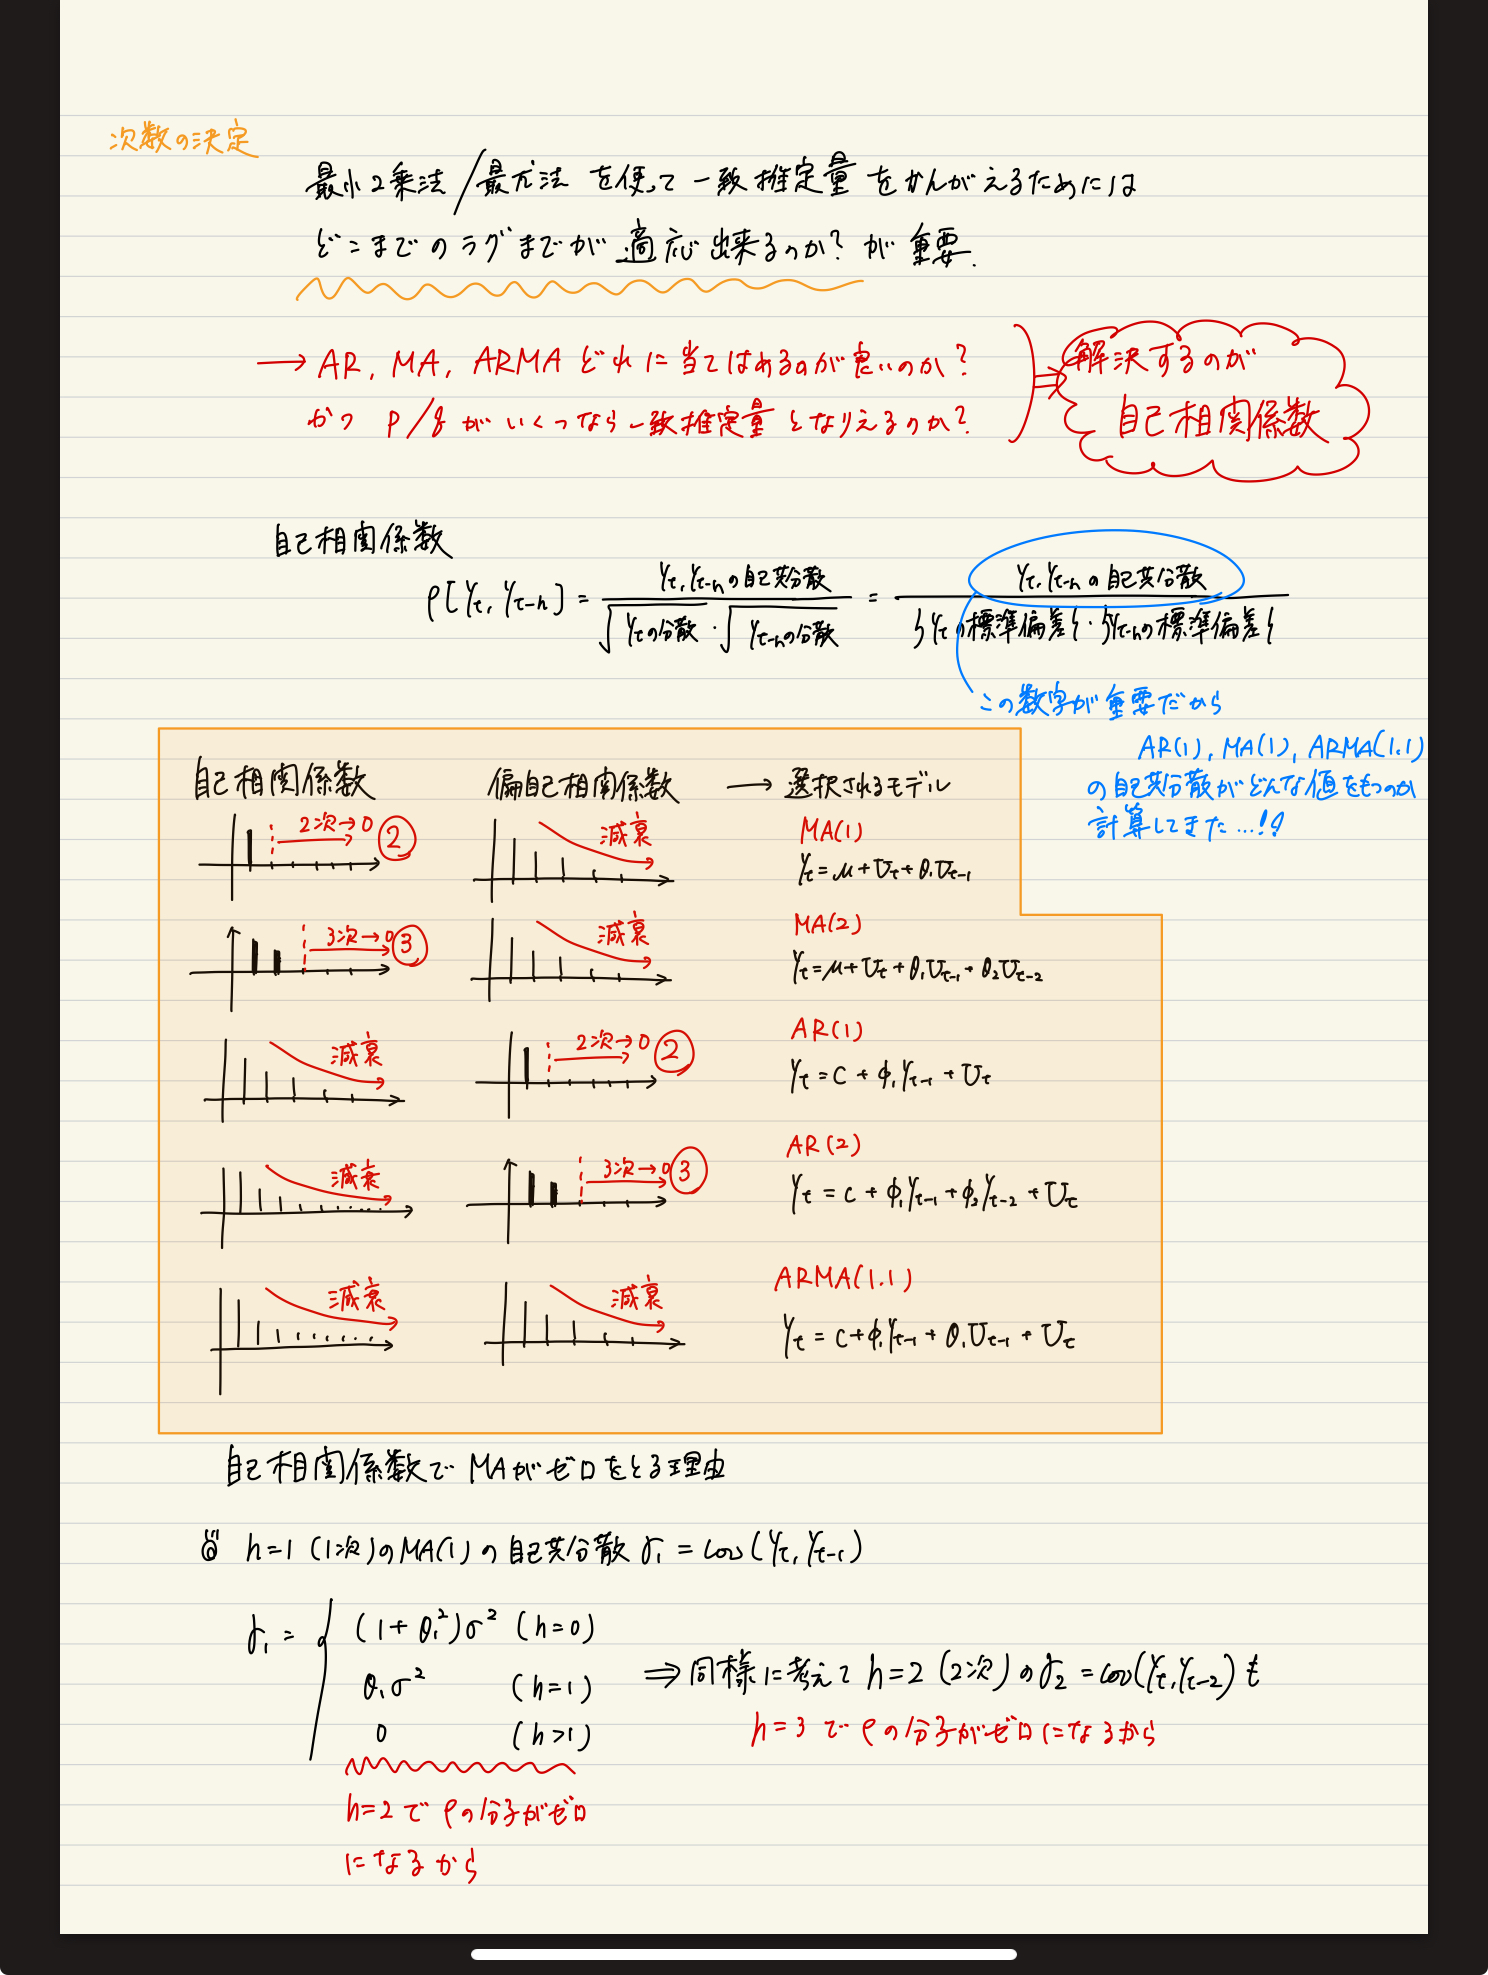 次数の決定
最小2乗法/最尤法 を使って 一致推定量 をかんがえるためには
どこまでのラグまでが 適応出来るのか? が 重要.
→ AR, MA, ARMA どれに当てはめるのが良いのか?
かつ p/q が いくつなら一致推定量 となりえるのか?
⇒ 解決するのが
自己相関係数
自己相関係数
ρ[Yt, Yt-h] = Yt, Yt-hの自己共分散 / √Ytの分散 · √Yt-hの分散 = Yt, Yt-hの自己共分散 / {Ytの標準偏差}·{Yt-hの標準偏差}
この数字が重要だから
AR(1), MA(1), ARMA(1.1)
の自己共分散がどんな値をもつのか
計算してきた...!!
自己相関係数 偏自己相関係数 → 選択されるモデル
2次→0 ② 減衰 MA(1)
Yt = μ + Ut + θ1Ut-1
3次→0 ③ 減衰 MA(2)
Yt = μ + Ut + θ1Ut-1 + θ2Ut-2
減衰 2次→0 ② AR(1)
Yt = C + φ1Yt-1 + Ut
減衰 3次→0 ③ AR(2)
Yt = c + φ1Yt-1 + φ2Yt-2 + Ut
減衰 減衰 ARMA(1.1)
Yt = C + φ1Yt-1 + θ1Ut-1 + Ut
自己相関係数で MAがゼロをとる理由
h=1 (1次)のMA(1)の自己共分散 γ1 = cov(Yt, Yt-1)
γ1 = { (1+θ1²)σ² (h=0)
θ1σ² (h=1)
0 (h>1)
⇒ 同様に考えて h=2 (2次) の γ2 = cov(Yt, Yt-2) も
h=3 で ρの分子がゼロになるから
h=2で ρの分子がゼロ
になるから